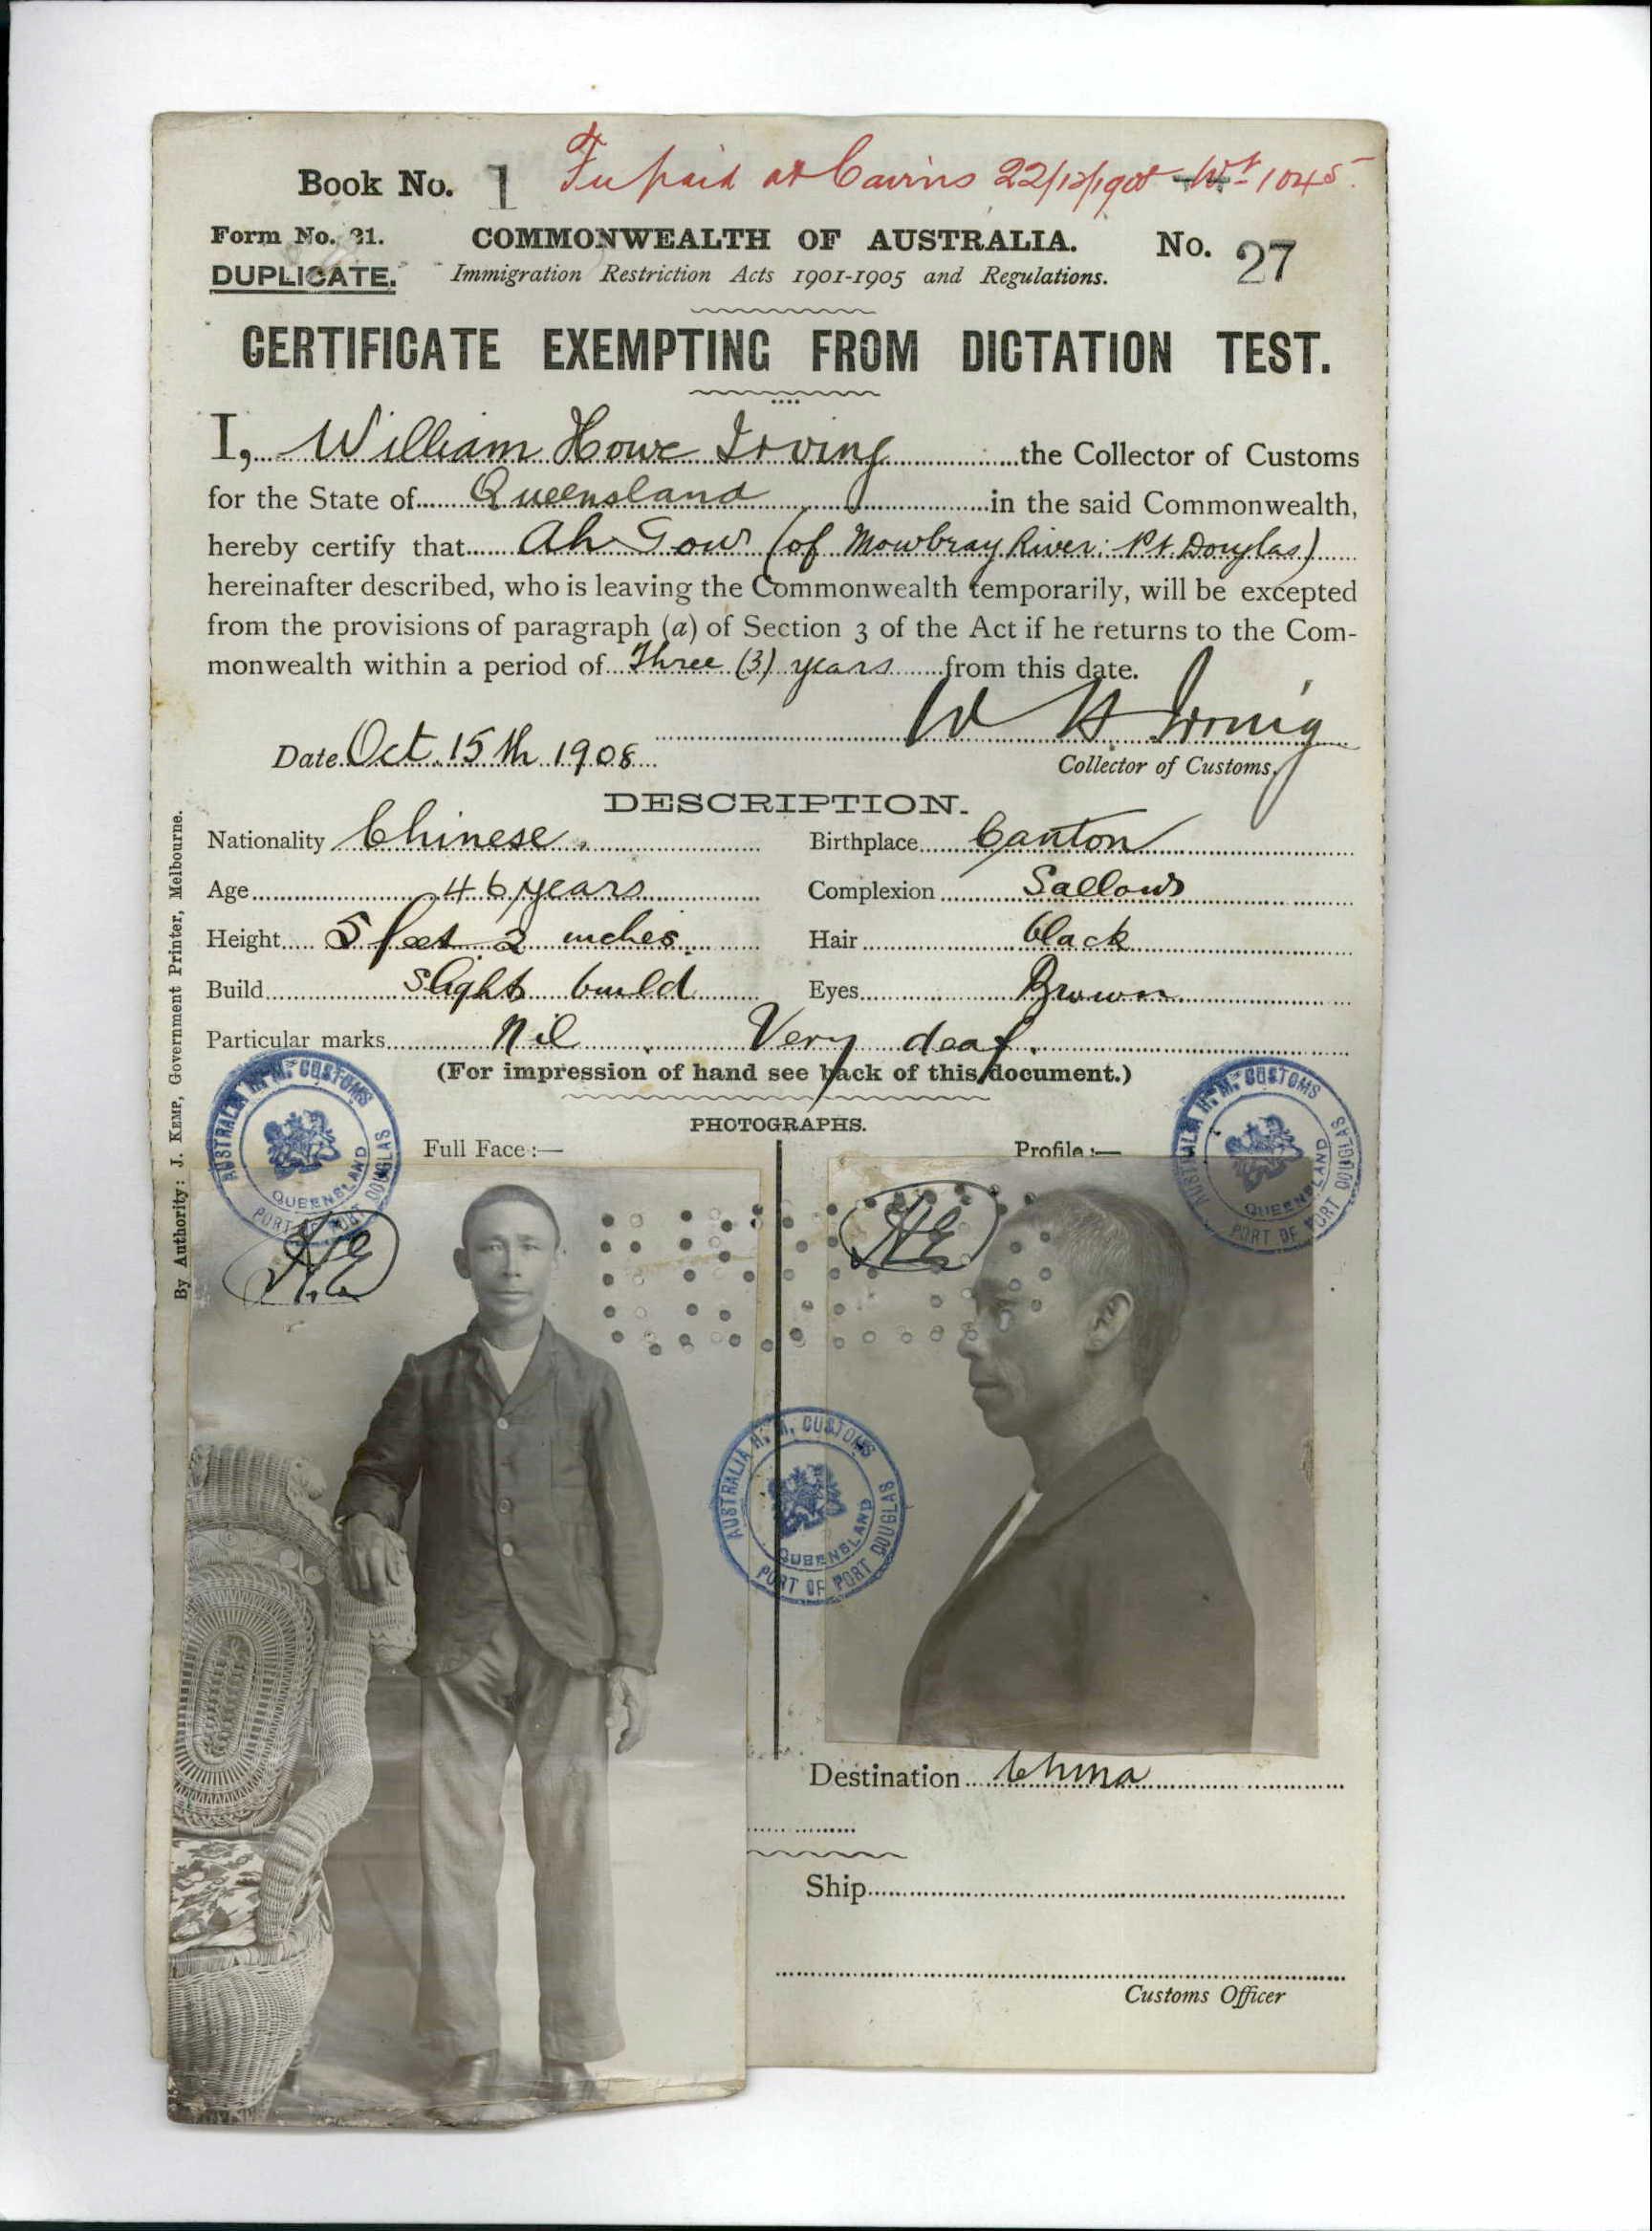 Book No. 1
Fee paid at Cairns 22/12/1908 1045
Form No. 21. COMMONWEALTH OF AUSTRALIA. No. 27
DUPLICATE. Immigration Restriction Acts 1901-1905 and Regulations.
CERTIFICATE EXEMPTING FROM DICTATION TEST.
I, William Howe Irving the Collector of Customs
for the State of Queensland in the said Commonwealth,
hereby certify that Ah Gow (of Mowbray River: Pt. Douglas)
hereinafter described, who is leaving the Commonwealth temporarily, will be excepted
from the provisions of paragraph (a) of Section 3 of the Act if he returns to the Com-
monwealth within a period of Three (3) years from this date.
W H Irving
Date Oct. 15th 1908
Collector of Customs.
DESCRIPTION.
Nationality Chinese. Birthplace Canton
Age 46 years Complexion Sallow
Height 5 feet 2 inches. Hair black
Build Slight build Eyes Brown
Particular marks Nil. Very deaf.
(For impression of hand see back of this document.)
PHOTOGRAPHS.
Full Face:— Profile:—
By Authority: J. KEMP, Government Printer, Melbourne.
AUSTRALIA H. M. CUSTOMS
QUEENSLAND
PORT OF PORT DOUGLAS
AUSTRALIA H. M. CUSTOMS
QUEENSLAND
PORT OF PORT DOUGLAS
H.E.
HE
AUSTRALIA H. M. CUSTOMS
QUEENSLAND
PORT OF PORT DOUGLAS
Destination China
Ship
Customs Officer